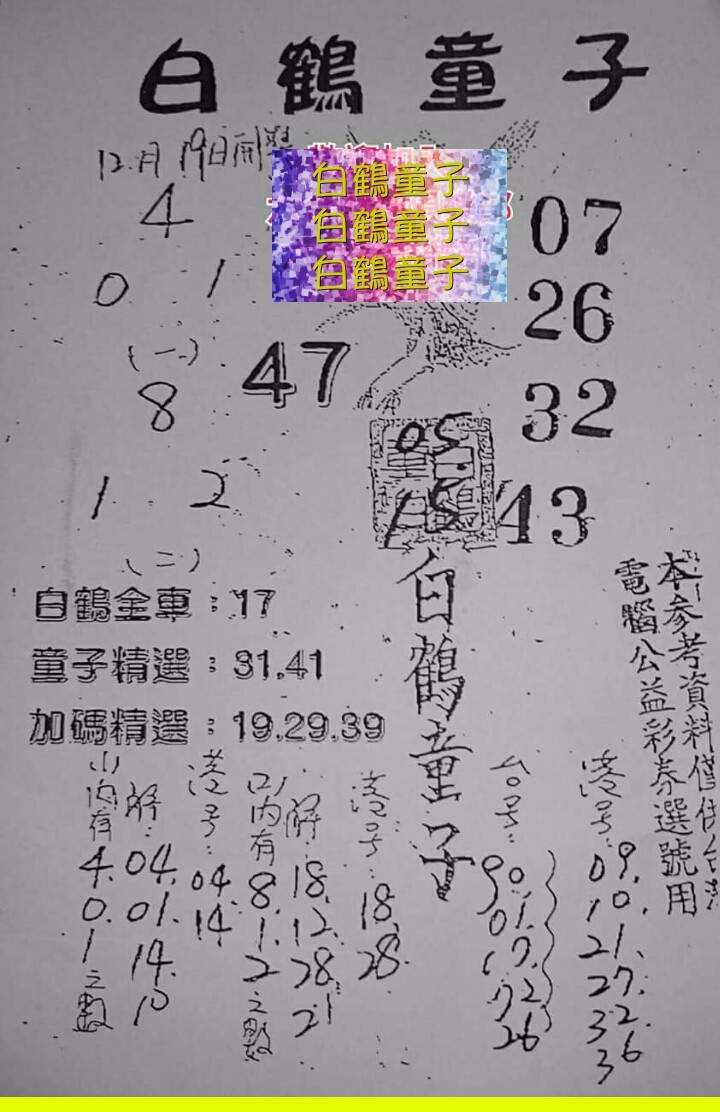 白鶴童子
12月19日開
白鶴童子
白鶴童子
白鶴童子
4
0 1
(一)
07
26
32
43
47
8
1 2
(二)
05
15
白鶴全車：17
童子精選：31.41
加碼精選：19.29.39
白鶴童子
本參考資料僅供台
電腦公益彩券選號用
(一)內有
4.
0.
1
之數
解：
04.
01.
14.
10
港号：
04
14
(二)內有
8.
1.
2
之數
解：
18.
12.
28.
21
港号：
18.
28.
台号：
90.
01.
17.
72.
26
港号：
09.
10.
21.
27.
32.
36